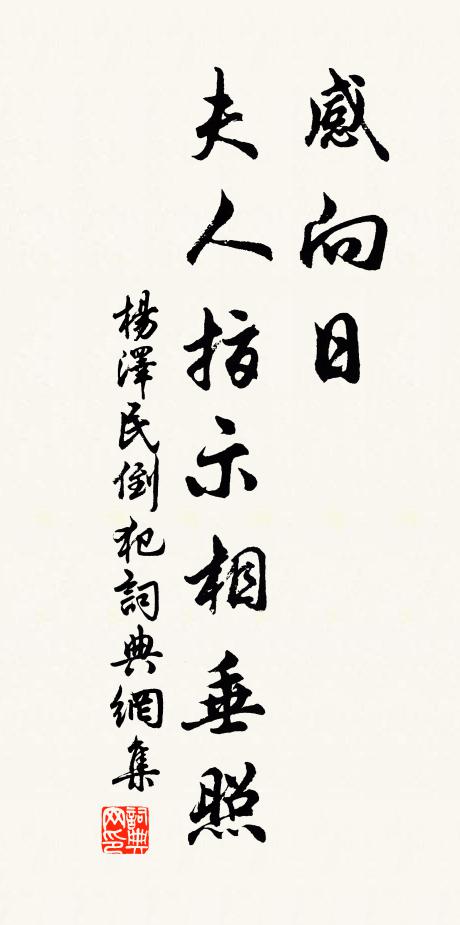 感向日
夫人指示相垂照
楊澤民倒犯詞典網集
詞典
网印